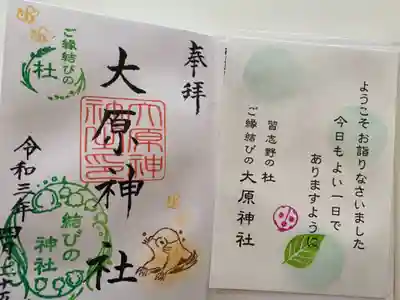 ようこそお詣りなさいました
今日もよい一日で
ありますように
習志野の杜
ご縁結びの大原神社
奉拝
大原神社
大原神
社印
ご縁結びの
社
結びの
神社
令和三年四月